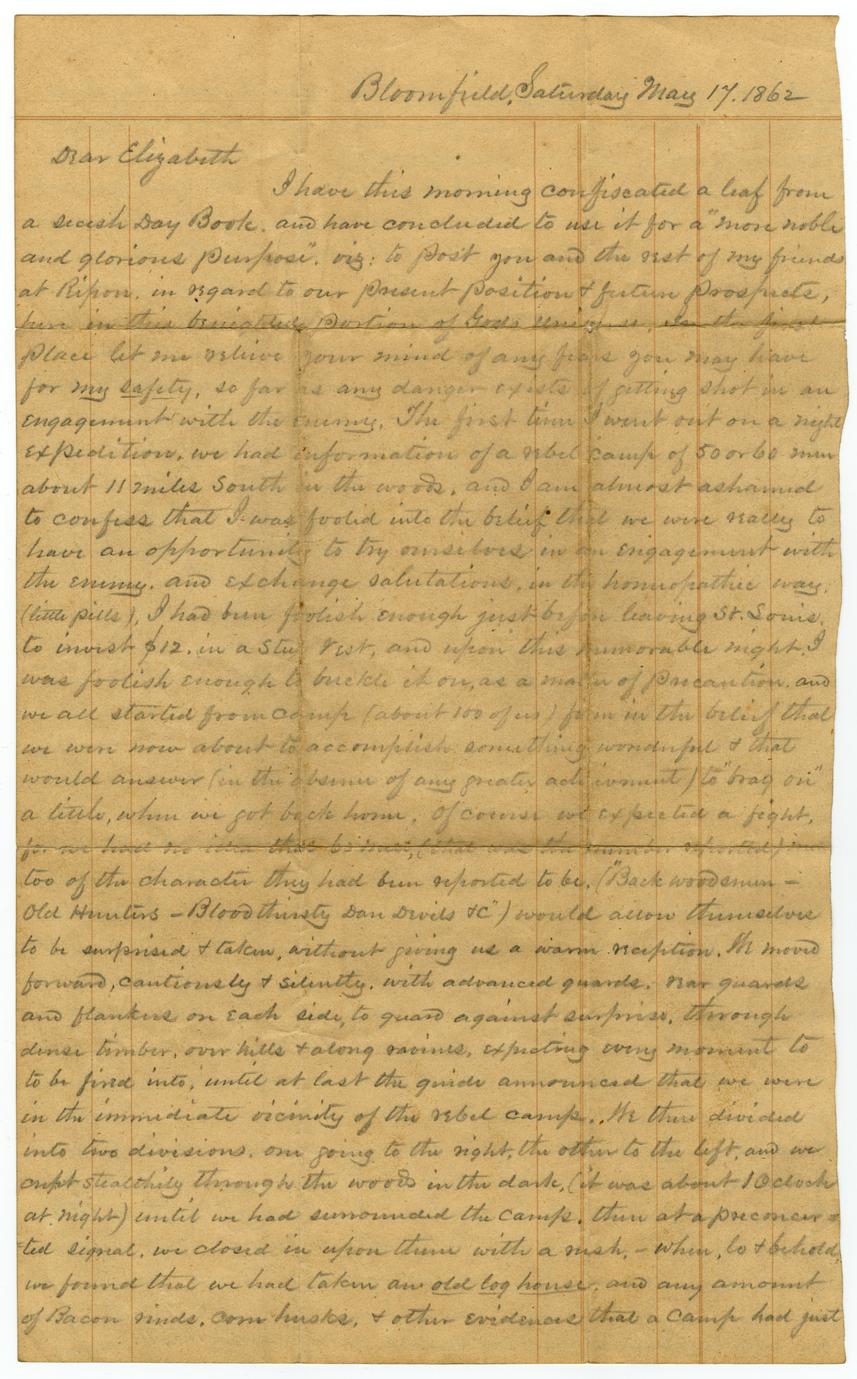 Bloomfield, Saturday May 17. 1862
Dear Elizabeth
I have this morning confiscated a leaf from
a secesh Day Book. and have concluded to use it for a "more noble
and glorious purpose". viz: to post you and the rest of my friends
at Ripon. in regard to our present position & future prospects,
here in this benighted portion of Gods universe, in the first
place let me relieve your mind of any fears you may have
for my safety, so far as any danger exists of getting shot in an
engagement with the enemy. The first time I went out on a night
expedition, we had information of a rebel camp of 50 or 60 men
about 11 miles South in the woods, and I am almost ashamed
to confess that I was foolid into the belief that we were really to
have an opportunity to try ourselves in an engagement with
the enemy. and exchange salutations, in the homeopathic way.
(little pills), I had been foolish enough just before leaving St. Louis,
to invest $12. in a Steel Vest, and upon this memorable night, I
was foolish enough to buckle it on, as a matter of precaution. and
we all started from camp (about 100 of us) firm in the belief that
we were now about to accomplish something wonderful & that
would answer (in the absence of any greater achievment) to "brag on"
a little, when we got back home. Of course we expected a fight,
for we had no idea that 60 men, (that was the number reported) men
too of the character they had been reported to be. ("Back woodsmen -
Old Hunters - Bloodthirsty Dare Devils &c") would allow themselves
to be surprised & taken, without giving us a warm reception. We moved
forward, cautiously & silently. with advanced guards. rear guards
and flankers on each side, to guard against surprise, through
dense timber, over hills & along ravines, expecting every moment to
to be fired into, until at last the guide announced that we were
in the immediate vicinity of the rebel camp. We then divided
into two divisions. one going to the right, the other to the left, and we
crept stealthily through the woods in the dark, (it was about 1 Oclock
at night) until we had surrounded the camp. then at a preconcer=
=ted signal. we closed in upon them with a rush, - when, lo & behold,
we found that we had taken an old log house. and any amount
of Bacon rinds, corn husks, & other evidences that a camp had just